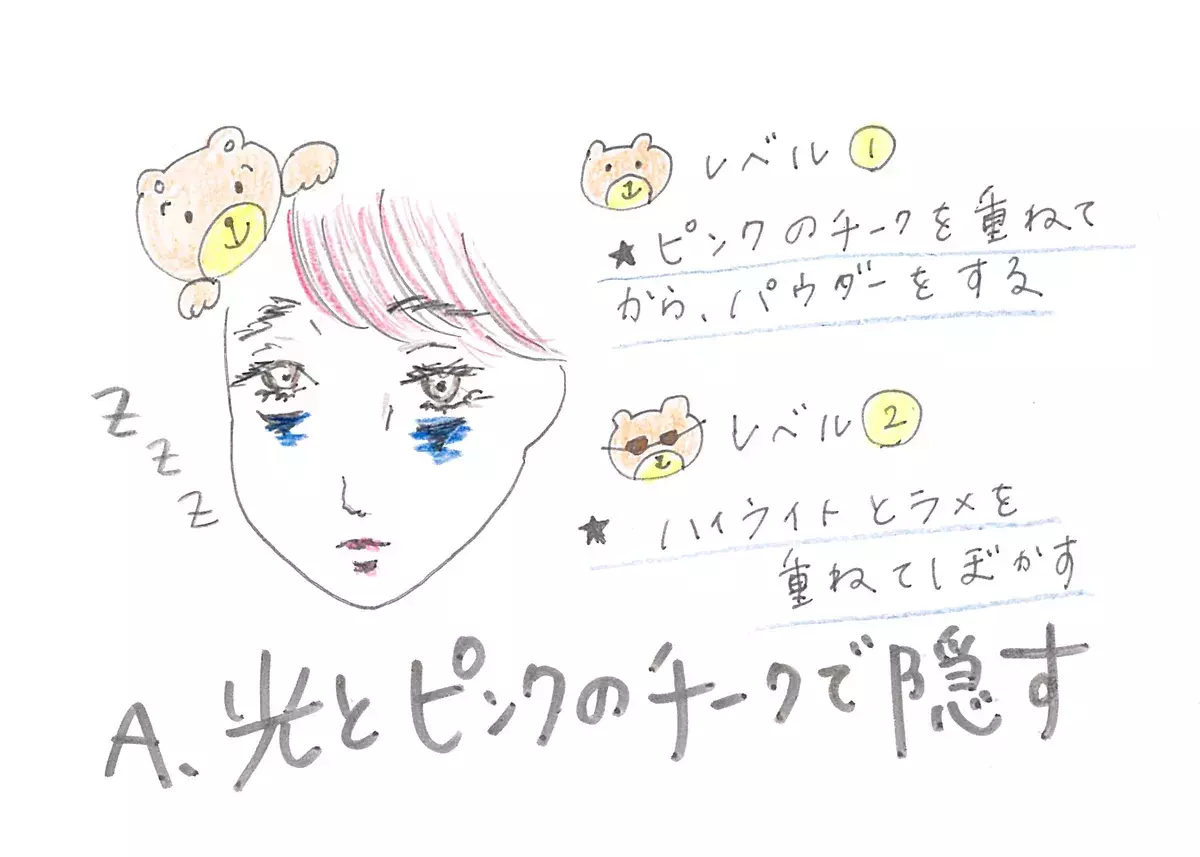 レベル①
★ピンクのチークを重ねて
から、パウダーをする
Z
Z
Z
レベル②
★ハイライトとラメを
重ねてしぼかす
A、光とピンクのチークで隠す